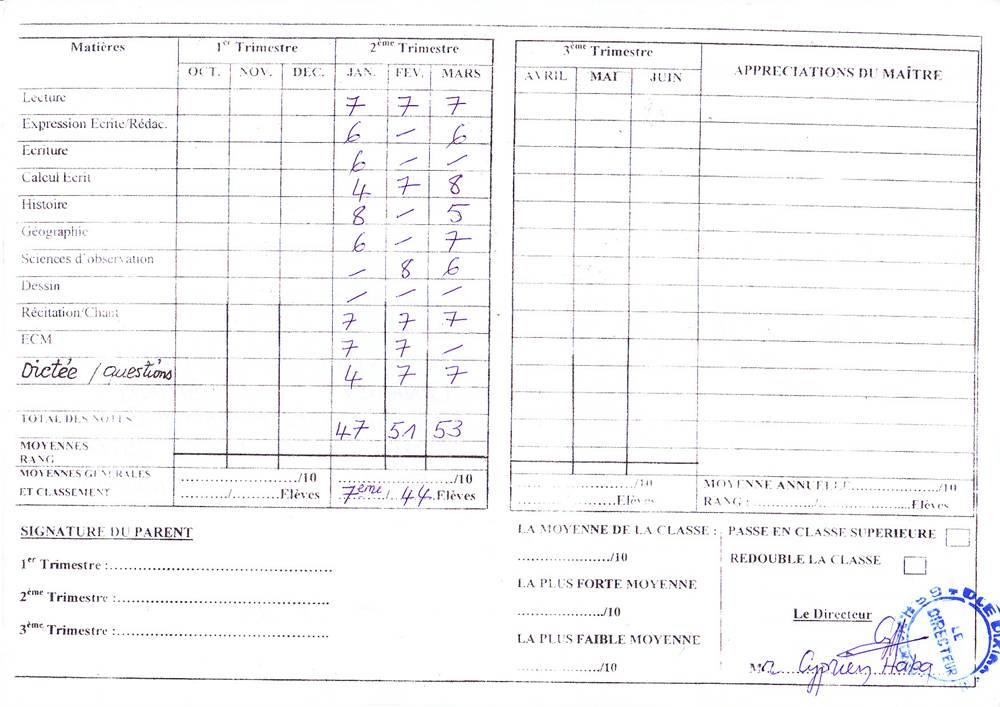 Matières 1er Trimestre 2ème Trimestre
OCT. NOV. DEC. JAN. FEV. MARS
Lecture 7 7 7
Expression Ecrite/Rédac. 6 – 6
Ecriture 6 – –
Calcul Ecrit 4 7 8
Histoire 8 – 5
Géographie 6 – 7
Sciences d'observation – 8 6
Dessin – – –
Récitation/Chant 7 7 7
ECM 7 7 –
Dictée / questions 4 7 7
TOTAL DES NOTES 47 51 53
MOYENNES
RANG
MOYENNES GENERALES ..................../10 ..................../10
ET CLASSEMENT ........./.........Elèves 7ème / 44 Elèves
3ème Trimestre APPRECIATIONS DU MAÎTRE
AVRIL MAI JUIN
..................../10 MOYENNE ANNUELLE..................../10
....................Elèves RANG :............../....................Elèves
SIGNATURE DU PARENT
1er Trimestre :........................................
2ème Trimestre :........................................
3ème Trimestre :........................................
LA MOYENNE DE LA CLASSE :
..................../10
LA PLUS FORTE MOYENNE
..................../10
LA PLUS FAIBLE MOYENNE
..................../10
PASSE EN CLASSE SUPERIEURE
REDOUBLE LA CLASSE
Le Directeur
Mr Cyprien Haba
LE
DIRECTEUR